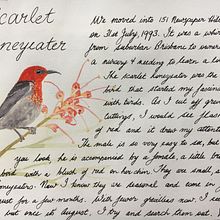 Scarlet
Honeyeater
We moved into 151 Newspaper
on 31st July, 1993. It was a
from suburban Brisbane to
a nursery & needing to learn a
The scarlet honeyeater was the
bird that started my
with birds. As I cut off
cuttings, I would see flash
of red and it drew my
The male is so very easy to see, but
you look, he is accompanied by a female, a little
bird with a blush of red on her chin. They are small,
honeyeaters. Now I know they are seasonal and come in
August for a few months. With fewer grevilleas now, I
but once it's August, I try and search them